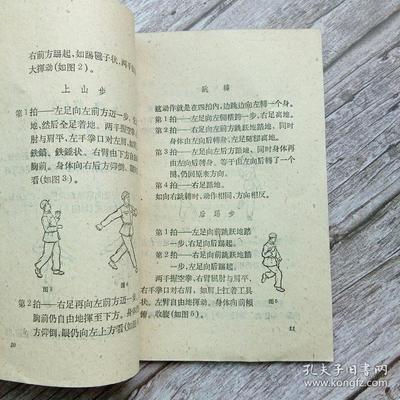 右前方踢起，如踢毽子状，两手
大揮动(如图2)。
上山步
第1拍——左足向左前方迈一步，
地，然后全足着地。两手握空拳，
时与肩平，左手拳口对左肩，如
鉄鎬、鉄錘状，右臂由下方自
胸前。身体向右后方仰倒，
看(如图3)
图3
图4
第2拍——右足再向左前方迈一步，
胸前仍自由地揮至下方。身体向
方仰倒，眼仍向左上方看(如图
10
跳轉
这动作就是在四拍内，边跳边向左轉一个身。
第1拍——左足向左側横跨一步，右足离地。
第2拍——右足向左前方跳跃踏地，同时
身体由左向后轉，左足随即离地。
第3拍——左足向左后方踏地，同时身体再
由左向后轉身，等于由左向后轉了一个
圈，仍回原来方向。
第4拍——右足踏地。
如向右跳轉时，动作相同，方向相反。
后踢步
第1拍——左足向前跳跃地踏
一步，右足向后踢起。
第2拍——右足向前跳跃地踏
一步，左足向后踢起。
两手半握空拳，右臂屈肘与肩平，
右手拳口对右肩，如肩上扛着工具
状，左臂自由地揮动。身体向前傾
俯，收腹(如图5)
图5
11
孔夫子旧书网
www.kongfz.com